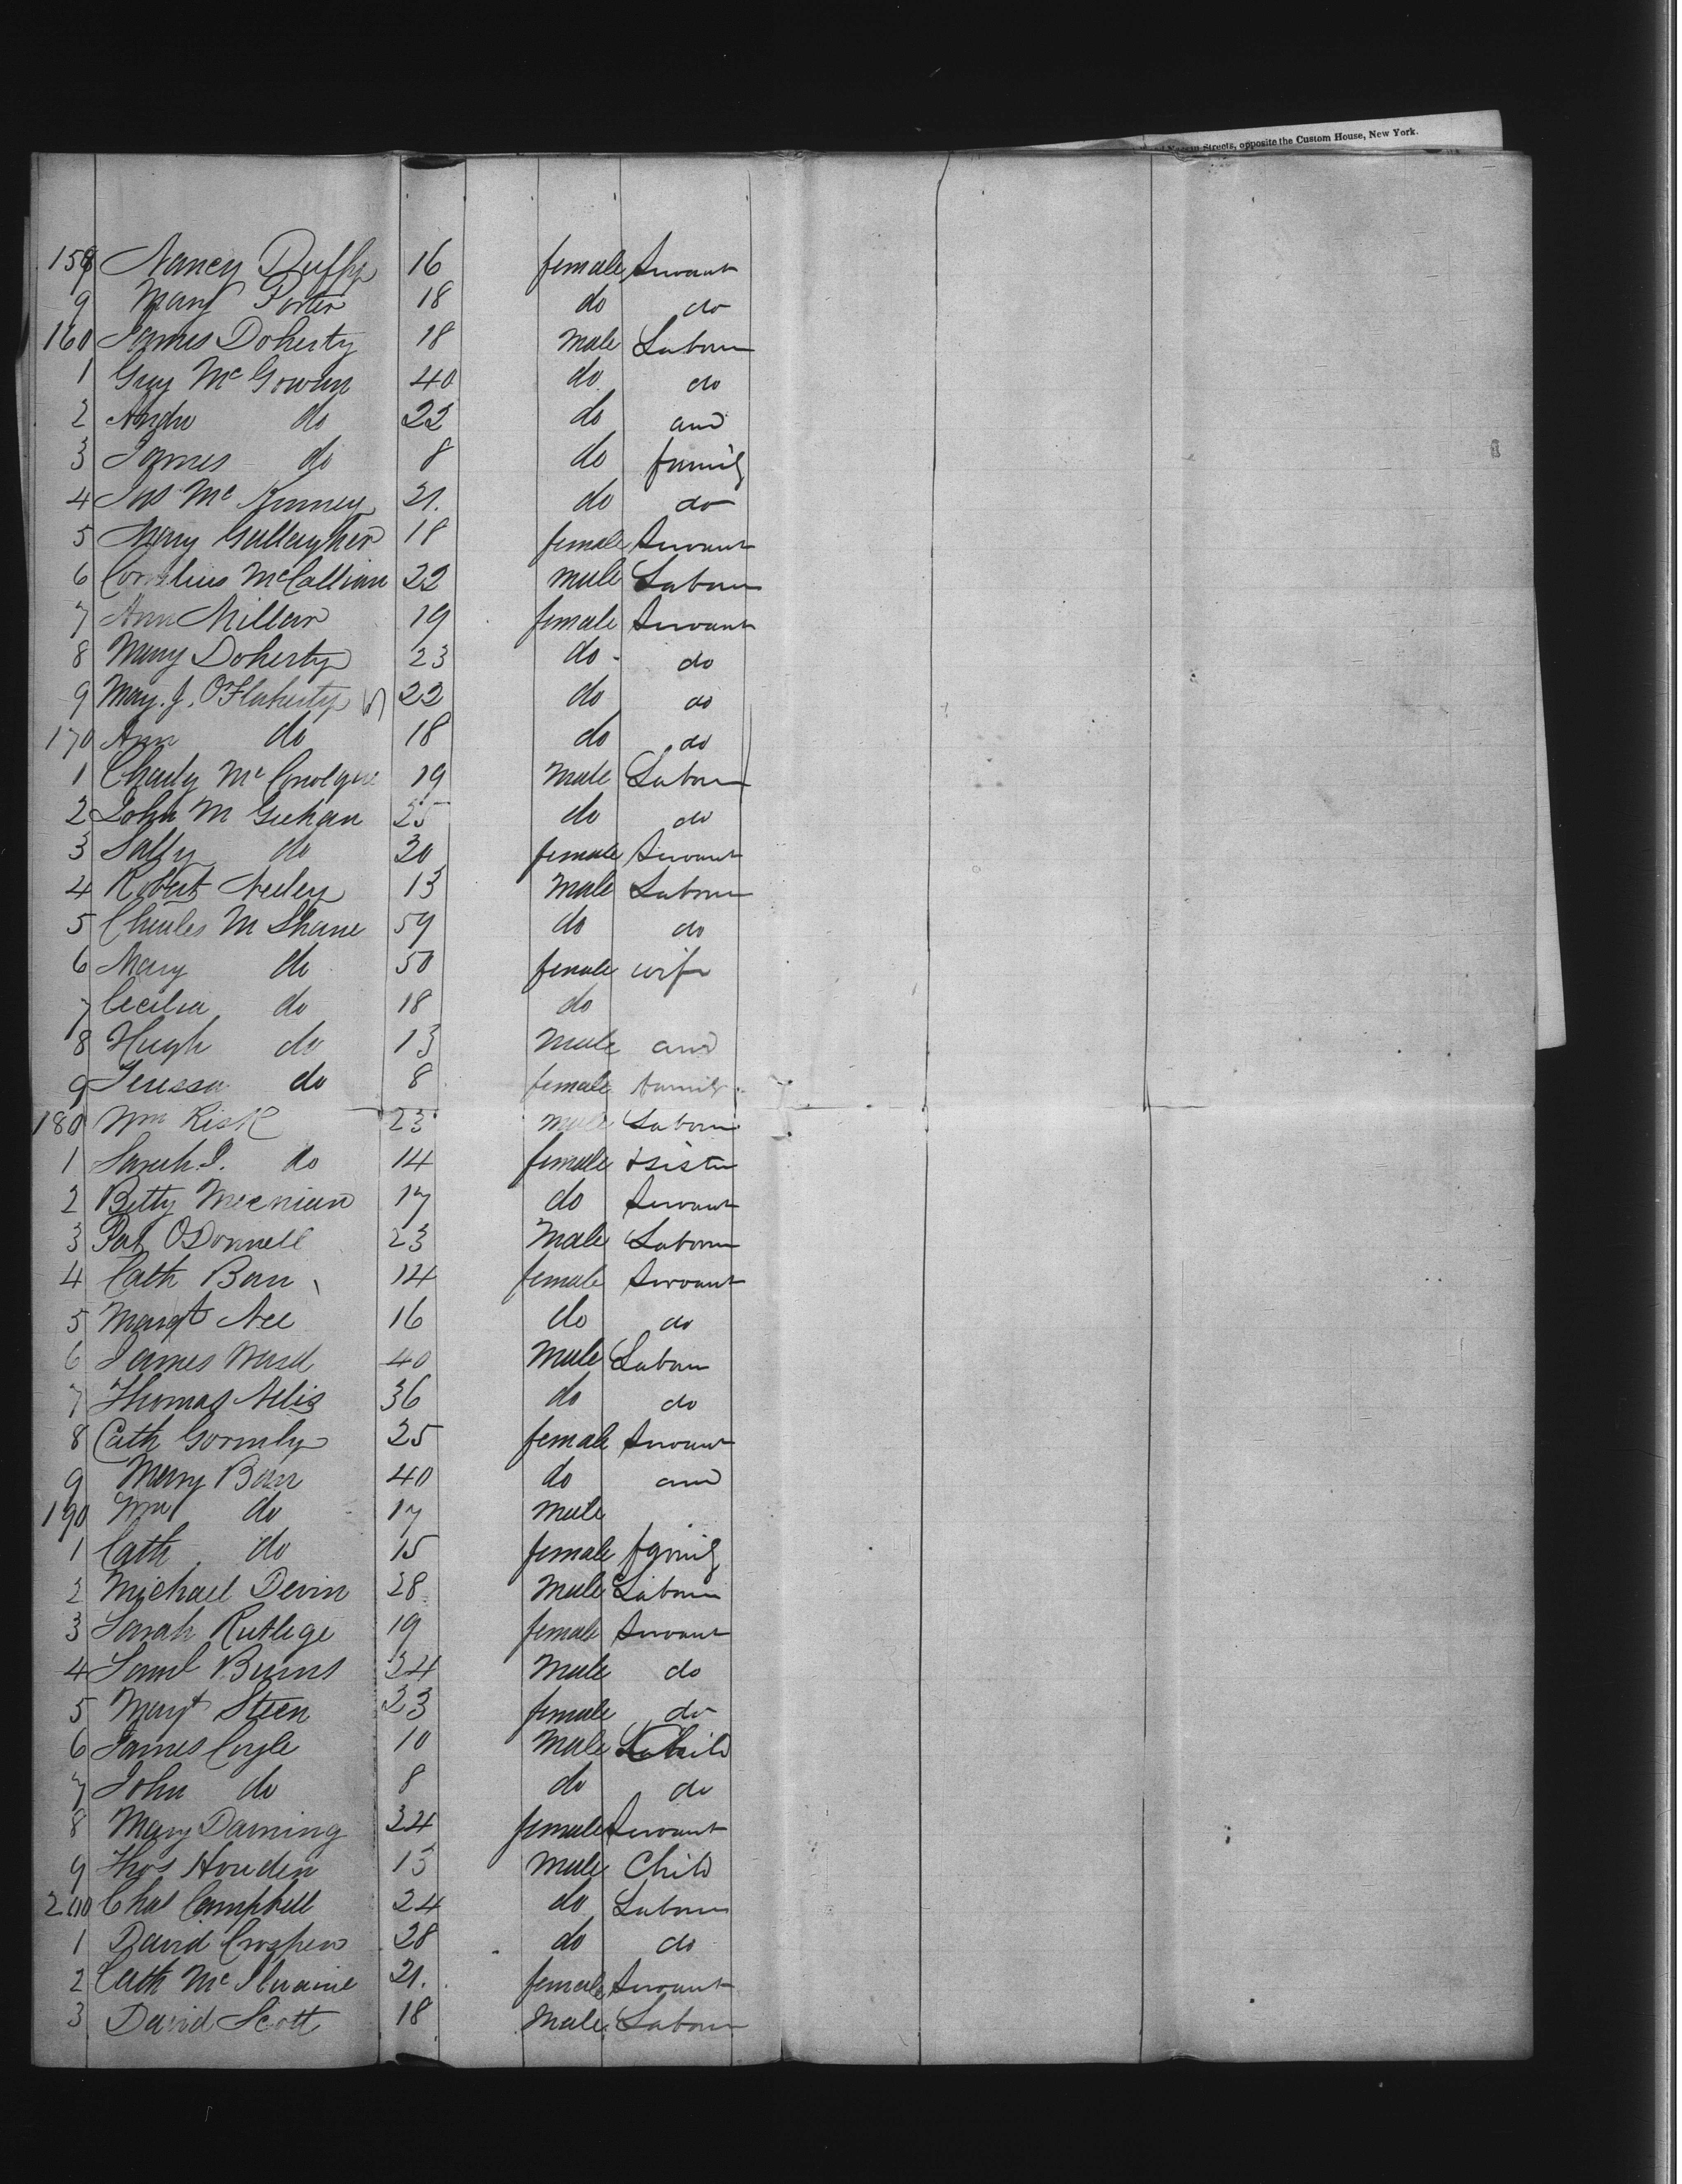 Streets, opposite the Custom House, New York.
158 Nancy Duffy 16 female Servant
9 Mary Porter 18 do do
160 James Doherty 18 Male Labour
1 Guy McGowan 40 do do
2 Andw do 22 do and
3 James do 8 do family
4 Jas McKinney 21. do do
5 Mary Gallagher 18 female Servant
6 Cornelius McCallian 22 male Labour
7 Ann Millar 19 female Servant
8 Mary Doherty 23 do do
9 Mary. J. O'Flaherty 22 do do
170 Ann do 18 do do
1 Charly Mc 19 Male Labour
2 John M Geehan 25 do do
3 Sally do 30 female Servant
4 Robert Neeley 13 Male Labour
5 Charles M Shane 59 do do
6 Mary do 50 female wife
7 Cecilia do 18 do
8 Hugh do 13 Male and
9 Teressa do 8 female family
180 Wm Risk 23 male Labour
1 Sarah. J. do 14 female & sister
2 Betty 17 do Servant
3 Pat O'Donnell 23 Male Labour
4 Cath 14 female Servant
5 Margt Nee 16 do do
6 James Ward 40 Male Labour
7 Thomas Nelis 36 do do
8 Cath Gormly 25 female Servant
9 Mary 40 do and
190 Wm do 17 Male
1 Cath do 15 female family
2 Michael Devin 28 Male Labour
3 Sarah Rutlege 19 female Servant
4 Saml Burns 34 Male do
5 Margt Steen 23 female do
6 James Coyle 10 Male Child
7 John do 8 do do
8 Mary Darning 34 female Servant
9 Thos Houden 13 Male Child
200 Chas Campbell 24 do Labour
1 David 28 do do
2 Cath McIlwaine 21. female Servant
3 David Scott 18 Male Labour